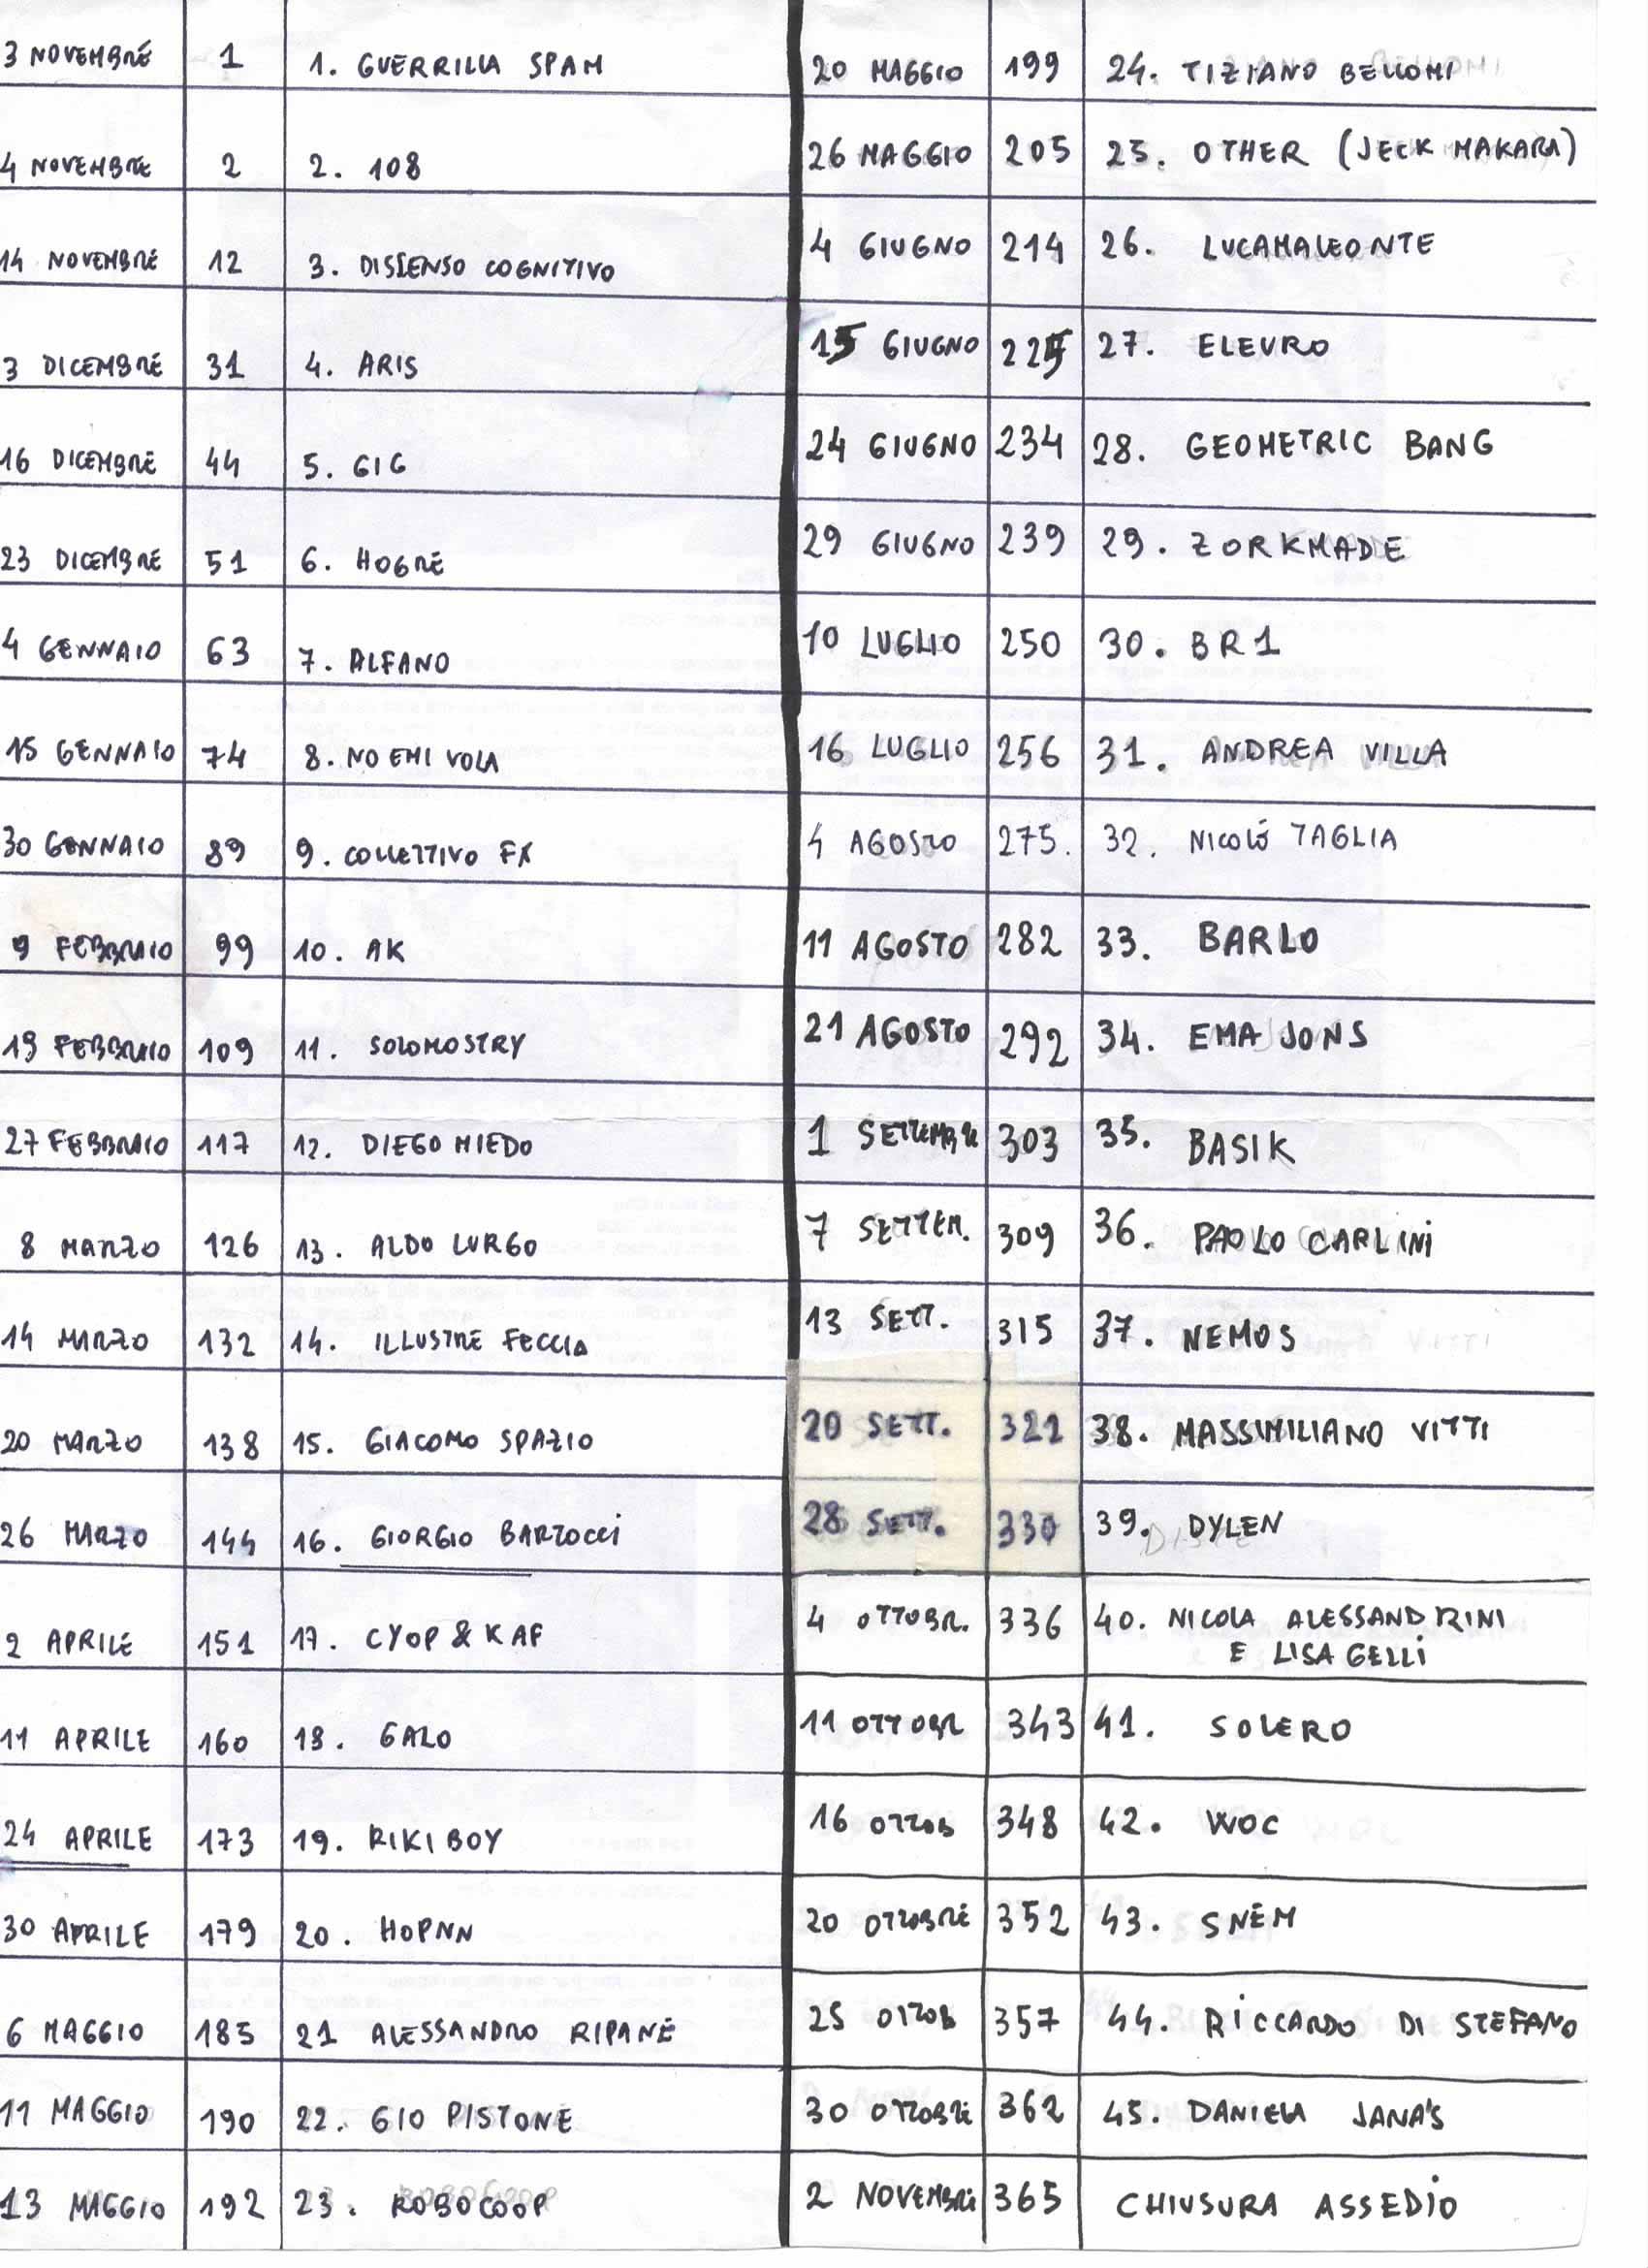 3 NOVEMBRE 1 1. GUERRILLA SPAM
4 NOVEMBRE 2 2. 108
14 NOVEMBRE 12 3. DISSENSO COGNITIVO
3 DICEMBRE 31 4. ARIS
16 DICEMBRE 44 5. GIG
23 DICEMBRE 51 6. HOGRE
4 GENNAIO 63 7. ALFANO
15 GENNAIO 74 8. NOEMI VOLA
30 GENNAIO 89 9. COLLETTIVO FX
9 FEBBRAIO 99 10. AK
19 FEBBRAIO 109 11. SOLOMOSTRY
27 FEBBRAIO 117 12. DIEGO MIEDO
8 MARZO 126 13. ALDO LURGO
14 MARZO 132 14. ILLUSTRE FECCIA
20 MARZO 138 15. GIACOMO SPAZIO
26 MARZO 144 16. GIORGIO BARTOCCI
2 APRILE 151 17. CYOP & KAF
11 APRILE 160 18. GALO
24 APRILE 173 19. RIKI BOY
30 APRILE 179 20. HOPNN
6 MAGGIO 185 21 ALESSANDRO RIPANE
11 MAGGIO 190 22. GIO PISTONE
13 MAGGIO 192 23. ROBOCOOP
20 MAGGIO 199 24. TIZIANO BELLOMI
26 MAGGIO 205 25. OTHER (JECK MAKARA)
4 GIUGNO 214 26. LUCAMALEONTE
15 GIUGNO 225 27. ELEURO
24 GIUGNO 234 28. GEOMETRIC BANG
29 GIUGNO 239 29. ZORKMADE
10 LUGLIO 250 30. BR1
16 LUGLIO 256 31. ANDREA VILLA
4 AGOSTO 275. 32. NICOLÓ TAGLIA
11 AGOSTO 282 33. BARLO
21 AGOSTO 292 34. EMA JONS
1 SETTEMBRE 303 35. BASIK
7 SETTEM. 309 36. PAOLO CARLINI
13 SETT. 315 37. NEMOS
20 SETT. 322 38. MASSIMILIANO VITTI
28 SETT. 330 39. DYLEN
4 OTTOBR. 336 40. NICOLA ALESSANDRINI
E LISA GELLI
11 OTTOBR 343 41. SOLERO
16 OTTOB 348 42. WOC
20 OTTOBRE 352 43. SNEM
25 OTTOB 357 44. RICCARDO DI STEFANO
30 OTTOBRE 362 45. DANIELA JANA'S
2 NOVEMBRE 365 CHIUSURA ASSEDIO